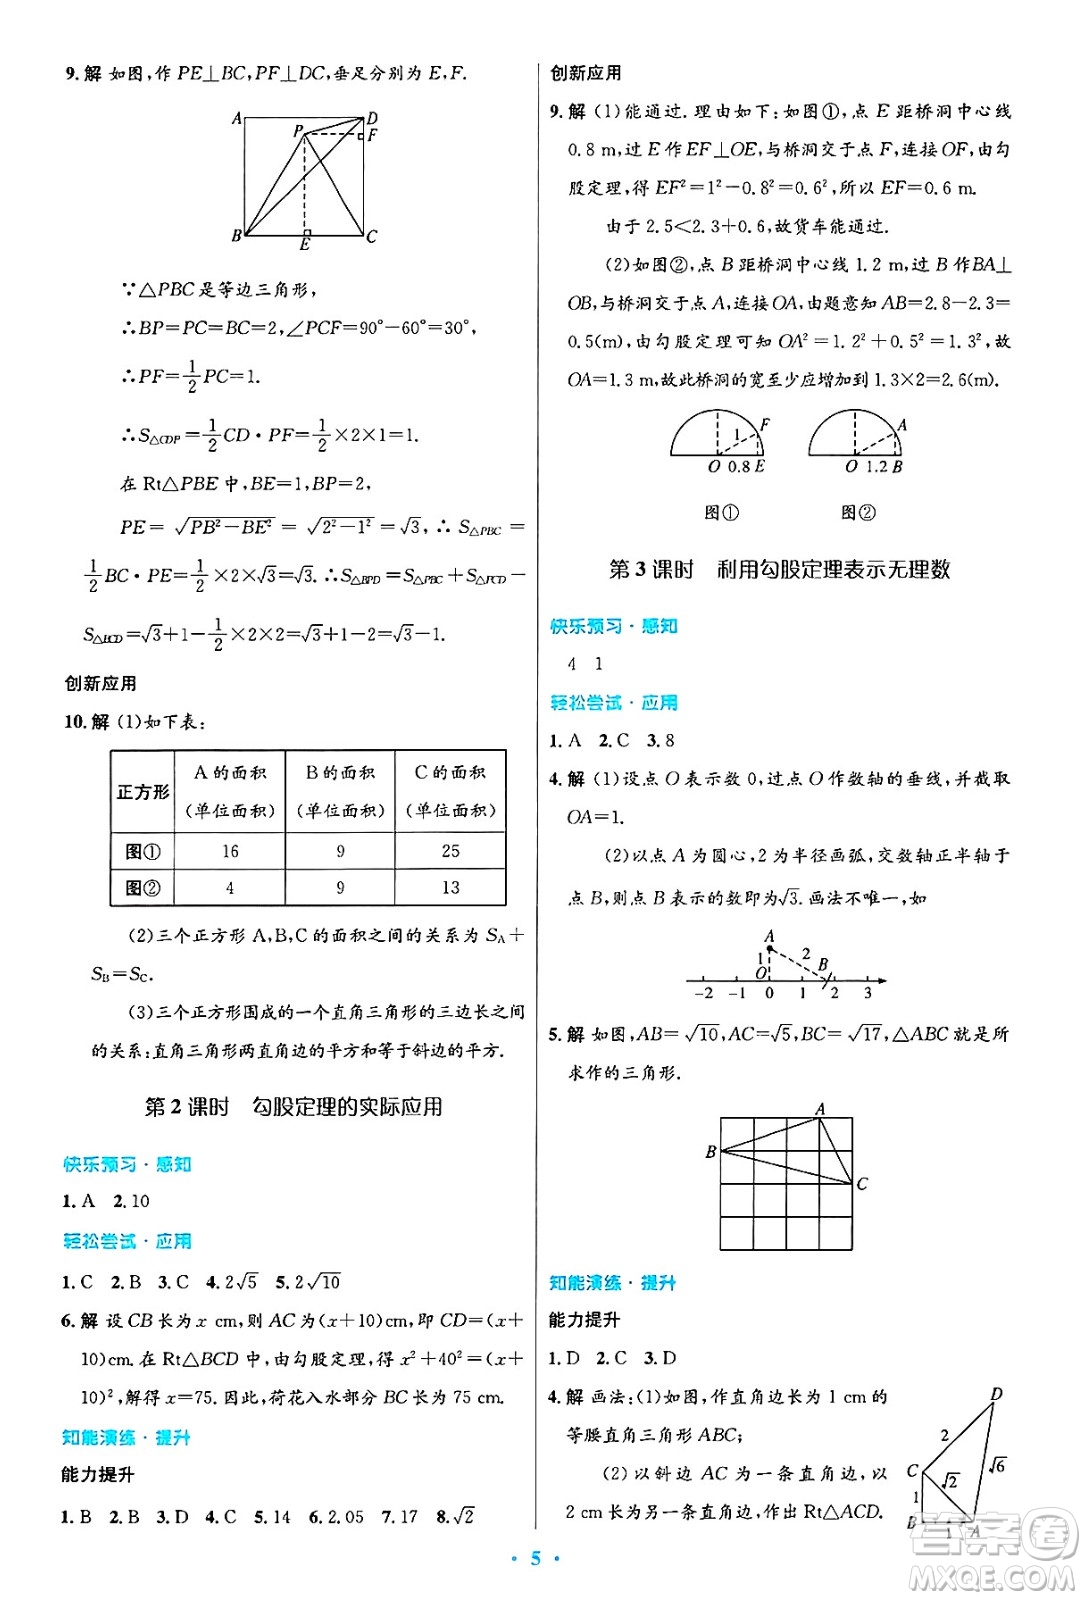 9.解 如图,作 PE⊥BC,PF⊥DC,垂足分别为 E,F.
A
D
P
F
B
E
C
∵△PBC 是等边三角形,
∴BP=PC=BC=2,∠PCF=90°-60°=30°,
∴PF=1/2PC=1.
∴S△CDP=1/2CD·PF=1/2×2×1=1.
在 Rt△PBE 中,BE=1,BP=2,
PE=√(PB²-BE²)=√(2²-1²)=√3,∴S△PBC=
1/2BC·PE=1/2×2×√3=√3,∴S△BPD=S△PBC+S△PCD-
S△BCD=√3+1-1/2×2×2=√3+1-2=√3-1.
创新应用
10.解 (1)如下表:
正方形 A 的面积(单位面积) B 的面积(单位面积) C 的面积(单位面积)
图① 16 9 25
图② 4 9 13
(2)三个正方形 A,B,C 的面积之间的关系为 SA+
SB=SC.
(3)三个正方形围成的一个直角三角形的三边长之间
的关系:直角三角形两直角边的平方和等于斜边的平方.
第 2 课时 勾股定理的实际应用
快乐预习·感知
1.A 2.10
轻松尝试·应用
1.C 2.B 3.C 4.2√5 5.2√10
6.解 设 CB 长为 x cm,则 AC 为(x+10)cm,即 CD=(x+
10)cm.在 Rt△BCD 中,由勾股定理,得 x²+40²=(x+
10)²,解得 x=75.因此,荷花入水部分 BC 长为 75 cm.
知能演练·提升
能力提升
1.B 2.B 3.D 4.C 5.14 6.2.05 7.17 8.√2
创新应用
9.解 (1)能通过.理由如下:如图①,点 E 距桥洞中心线
0.8 m,过 E 作 EF⊥OE,与桥洞交于点 F,连接 OF,由勾
股定理,得 EF²=1²-0.8²=0.6²,所以 EF=0.6 m.
由于 2.5<2.3+0.6,故货车能通过.
(2)如图②,点 B 距桥洞中心线 1.2 m,过 B 作BA⊥
OB,与桥洞交于点 A,连接 OA,由题意知 AB=2.8-2.3=
0.5(m),由勾股定理可知 OA²=1.2²+0.5²=1.3²,故
OA=1.3 m,故此桥洞的宽至少应增加到 1.3×2=2.6(m).
1
F
A
O 0.8 E
O 1.2 B
图①
图②
第 3 课时 利用勾股定理表示无理数
快乐预习·感知
4 1
轻松尝试·应用
1.A 2.C 3.8
4.解 (1)设点 O 表示数 0,过点 O 作数轴的垂线,并截取
OA=1.
(2)以点 A 为圆心,2 为半径画弧,交数轴正半轴于
点 B,则点 B 表示的数即为√3.画法不唯一,如
A
1
2
B
O
-2 -1 0 1 2 3
5.解 如图,AB=√10,AC=√5,BC=√17,△ABC 就是所
求作的三角形.
A
B
C
知能演练·提升
能力提升
1.D 2.C 3.D
4.解 画法:(1)如图,作直角边长为 1 cm 的
等腰直角三角形 ABC;
(2)以斜边 AC 为一条直角边,以
2 cm 长为另一条直角边,作出 Rt△ACD.
D
2
C
√2
√6
1
B
1
A
·5·
答案卷
MXQE.COM